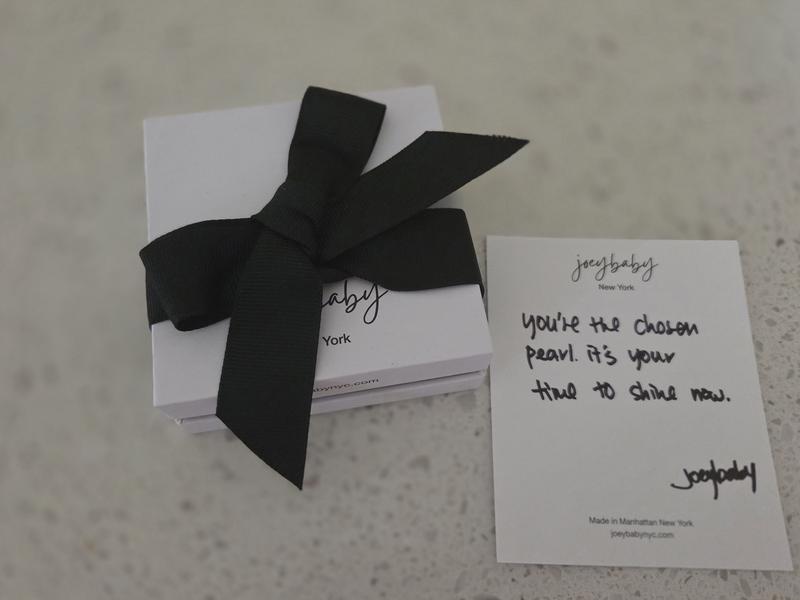 aby
York
abynyc.com
joeybaby
New York
you're the chosen
pearl. it's your
time to shine now.
joeybaby
Made in Manhattan New York
joeybabynyc.com